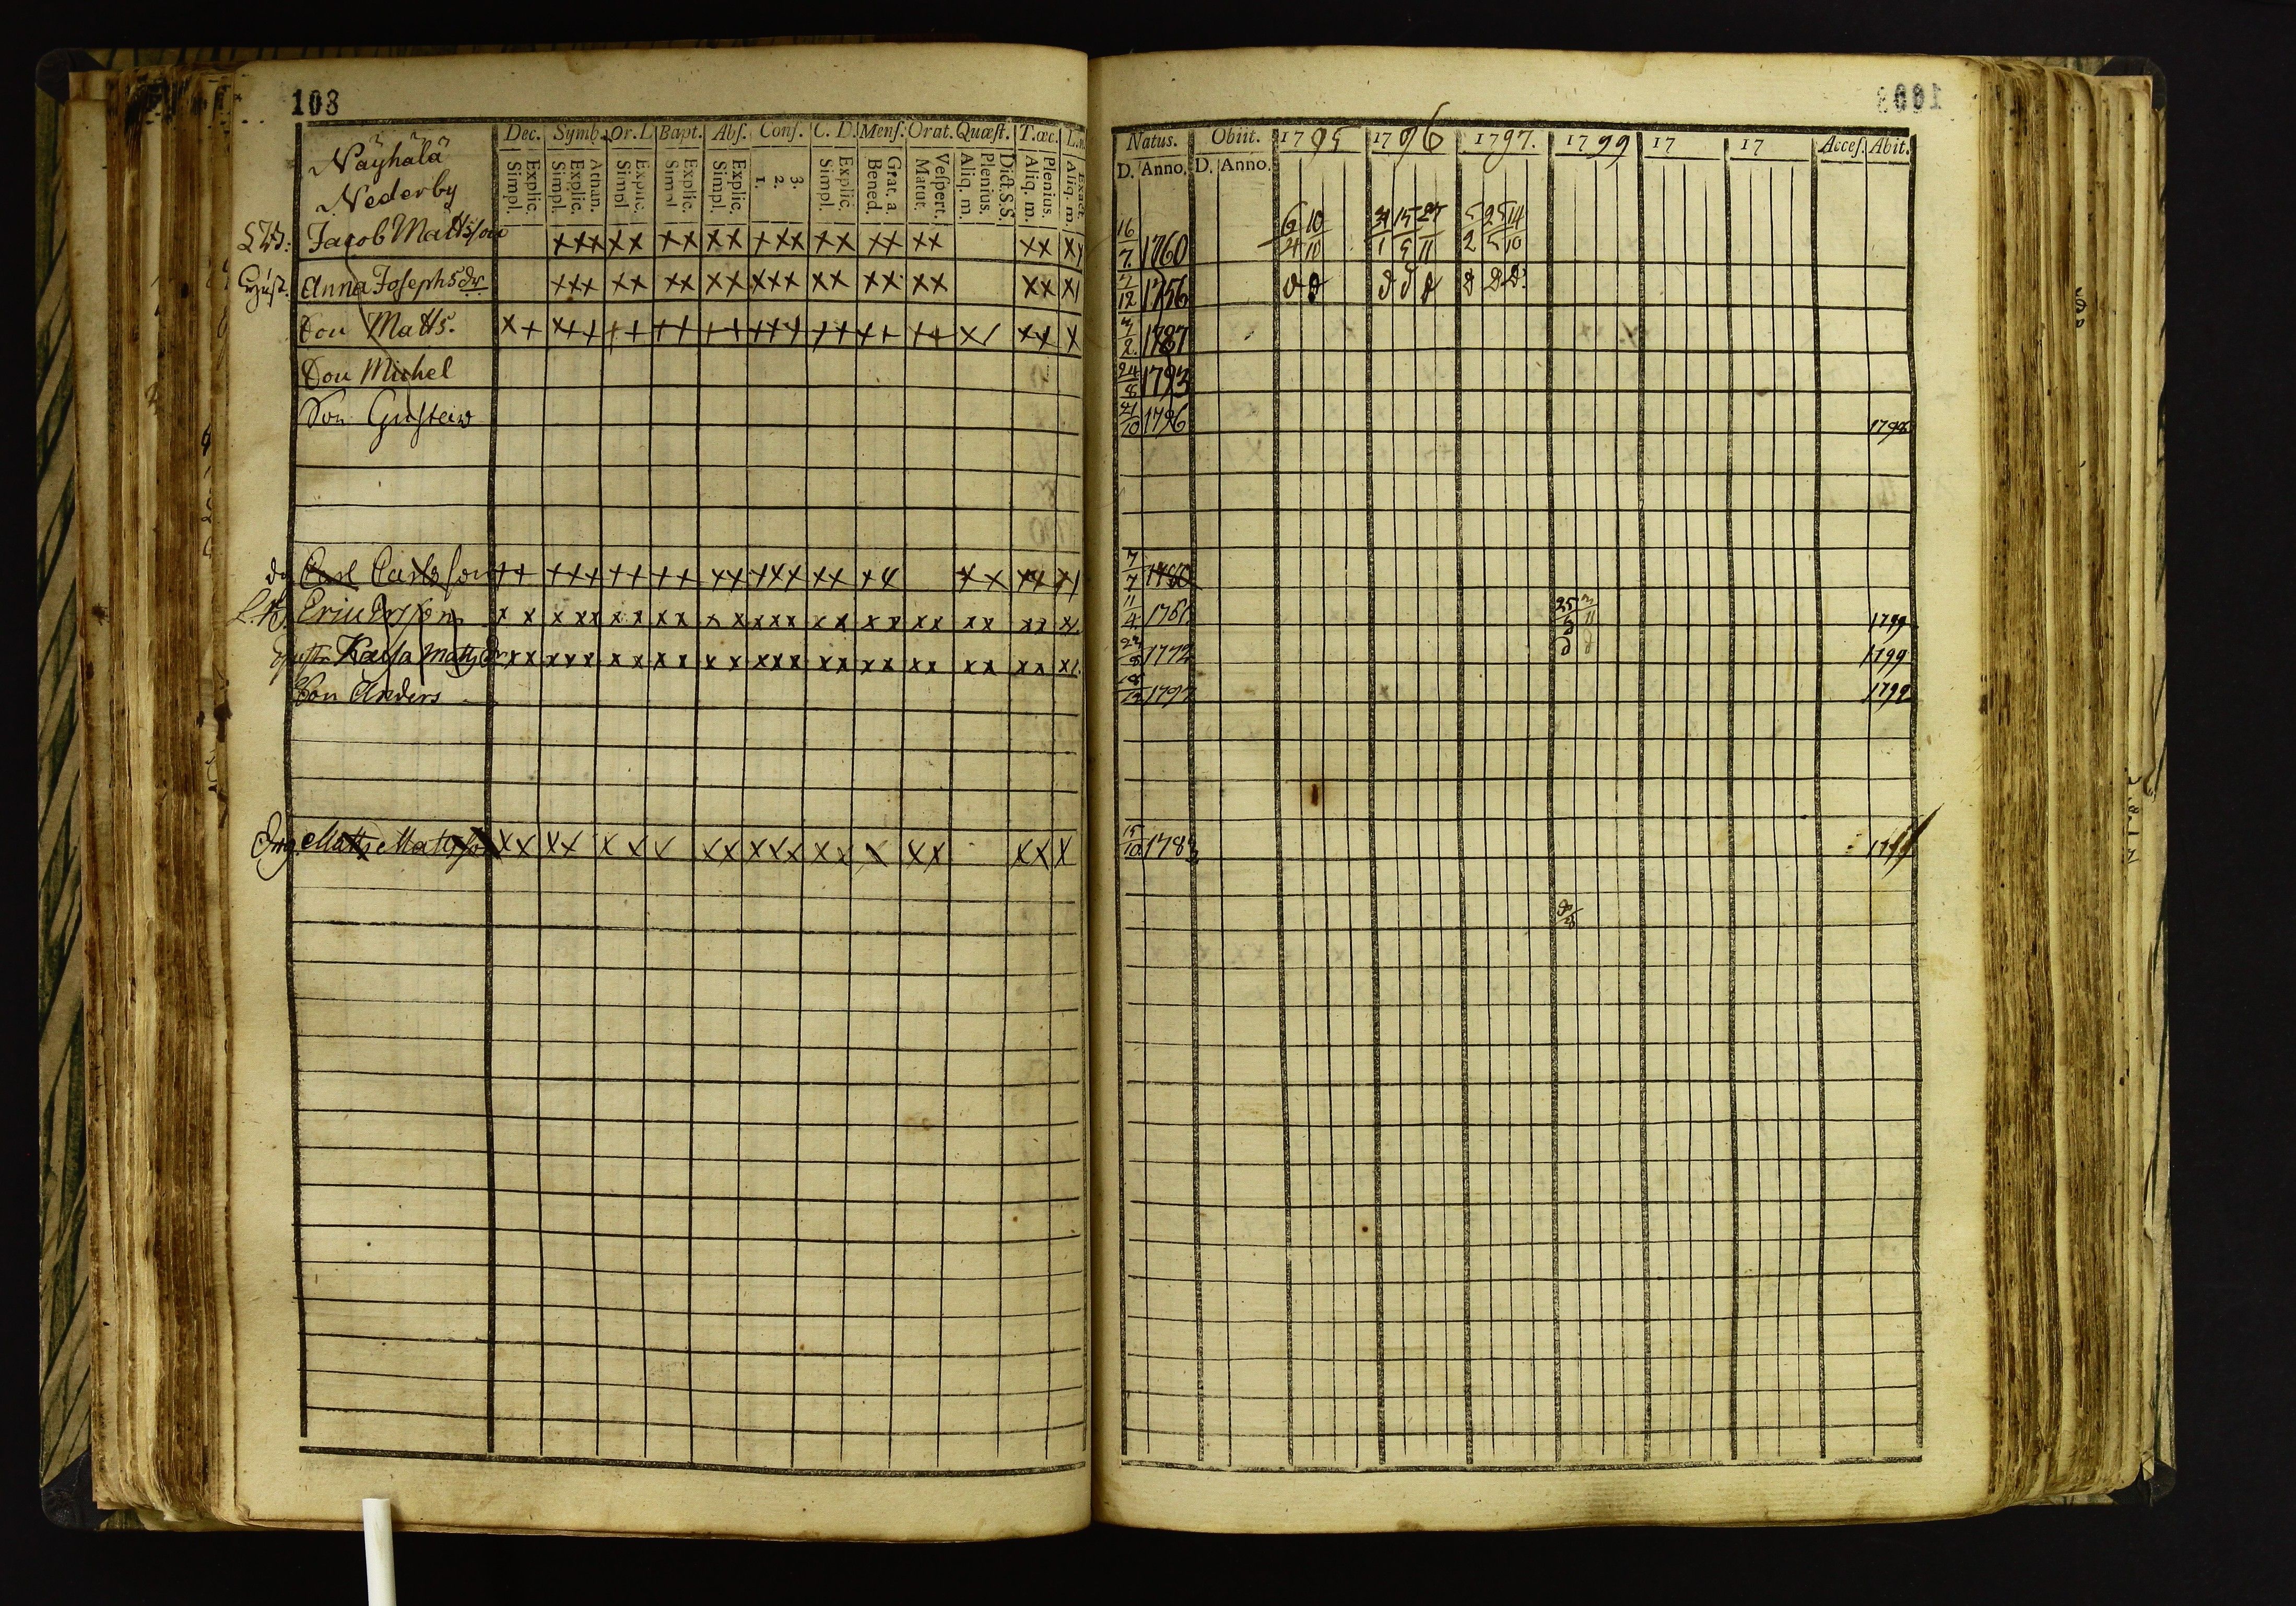 103
Näyhälä
Nederby
Dec. Symb. Or. L. Bapt. Abſ. Conſ. C. D. Menſ. Orat. Quæſt. T. œc. L. n.
Simpl. Explic. Simpl. Explic. Athan. Simpl. Explic. Simpl. Explic. Simpl. Explic. 1. 2. 3. Simpl. Explic. Bened. Grat. a. Matut. Veſpert. Aliq. m. Plenius. Dict. S.S. Aliq. m. Plenius. Aliq. m. Exact.
Natus. Obiit. 1795 1796 1797. 1799 17 17 Acceſ. Abit.
D. Anno. D. Anno.
Jacob Mattsſon xxx xx xx xx xxx xx xx xx xx xx 16/7 1760 6/4 10/10 31/1 15/5 27/11 5/2 25/5 14/10
Hust. Anna Josephsdr xxx xx xx xx xxx xx xx xx xx x1 1756
Son Matts. x+ x++ ++ ++ ++ +++ ++ ++ ++ x/ xx x 1787
Son Michel 24/8 1793
Son Gustaw 21/10 1796 1798
dg Carl Carlsſon ++ +++ ++ ++ xx +xx xx +x xx xx x1 7/7 1780
Eric Ersson x x x xx x x x x x x xxx x x x x x x x x x x x1 11/4 1761 25/3 3/11 1799
Hustr Kaisa Matsdr xx xxx x x x x x x xxx xx xx xx x x x x x1. 1772 1799
Son Anders 1797 1799
Dräng Matts Matsson xx xx x x x xx xxx xx x xx xx x 15/10 1783